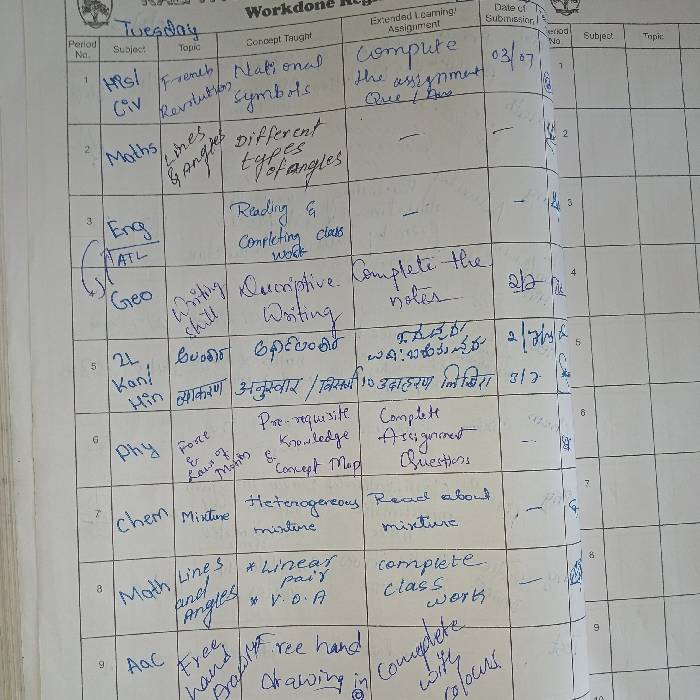 Workdone Reg
Tuesday
Period No.
Subject
Topic
Concept Taught
Extended Learning/ Assignment
Date of Submission
Period No.
Subject
Topic
1
His/ Civ
French Revolution
National symbols
Compute the assignment Que / Ans
03/07
1
2
Maths
Lines & Angles
Different types of angles
—
—
2
3
Eng
ATL
Reading & Completing class work
—
–
3
Geo
Writing skill
Discriptive Writing
Complete the notes
2/7
4
5
2L
Kan/
Hin
व्याकरण
अनुस्वार / विसर्ग
10 उदाहरण लिखिए
3/7
5
6
Phy
Force & Laws of Motion
Pre-requisite Knowledge & Concept Map
Complete Assignment Questions
–
6
7
Chem
Mixture
Heterogeneous mixture
Read about mixture
–
7
8
Math
Lines and Angles
* Linear pair
* V.O.A
complete class work
—
8
9
Aac
Free hand
Free hand Drawing in
complete with colours
9